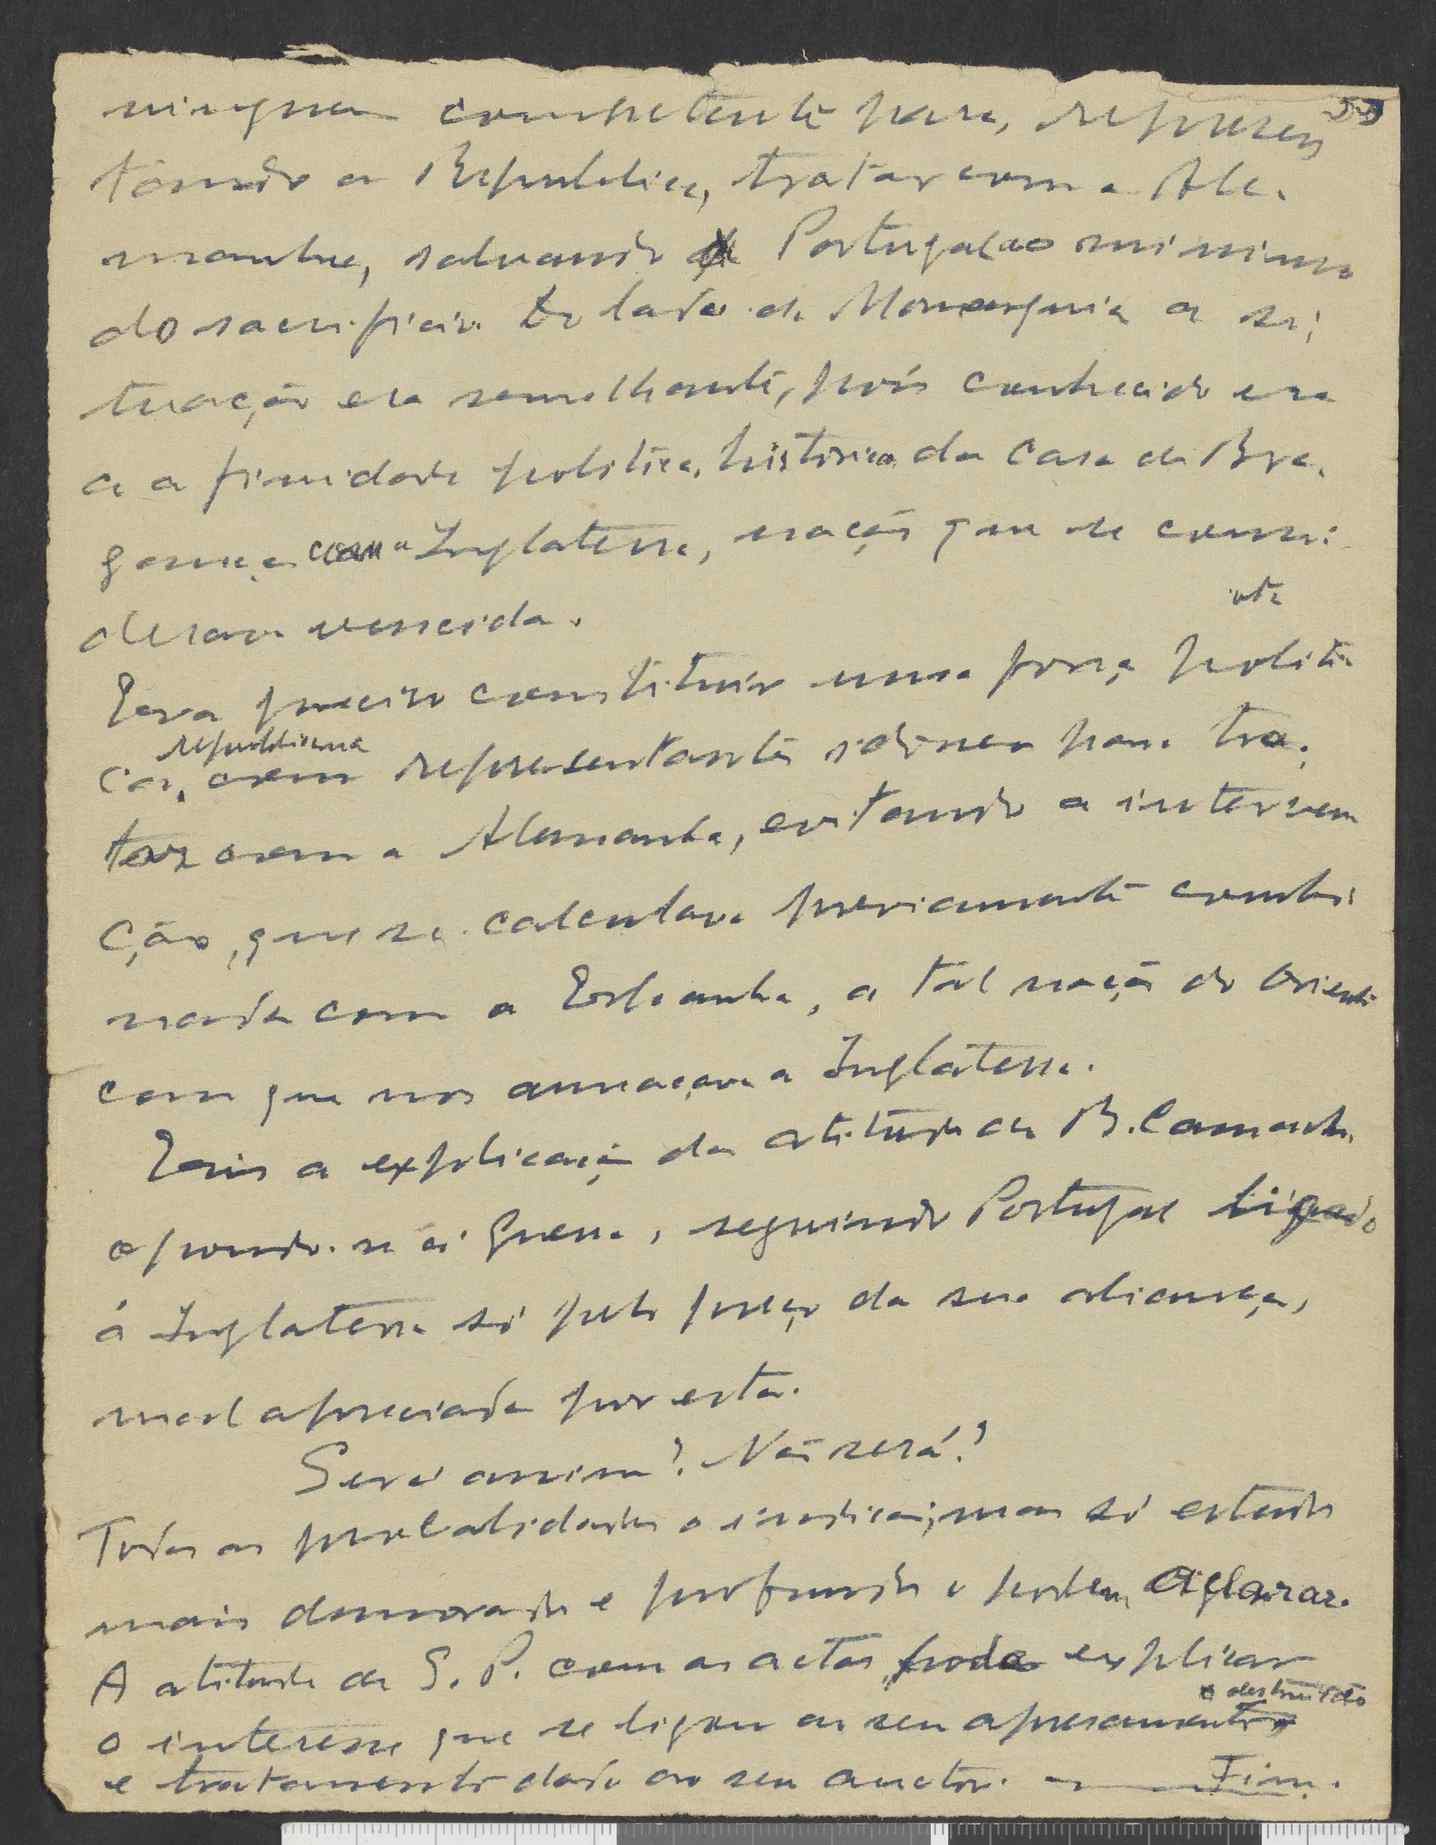 59
ninguem competente para, represen
tando a Republica, tratar com a Ale-
manha, salvando Portugal ao minimo
do sacrificio. Do lado da Monarquia a si-
tuação era semelhante, pois conhecido era
a afinidade politica, historica da Casa de Bra-
gança com a Inglaterra, nação que se consi
derava vencida.
Era preciso constituir uma força politi
republicana
ca, com representante idoneo para tra-
tar com a Alemanha, evitando a interven
ção, que se calculava previamente combi
nada com a Espanha, a tal nação do Oriente
com que nos ameaçava a Inglaterra.
Eis a explicação da atitude de B. Camacho
opondo-se á Guerra, seguindo Portugal ligado
á Inglaterra só pelo preço da sua aliança,
mal apreciada por esta.
Será assim? Não será?
Todas as probabilidades o indicam, mas só estudo
mais demorado e profundo o poderá aclarar.
A atitude de S. P. com as actas pode explicar
e destruição
o interesse que se ligou ao seu apresamento
e tratamento dado ao seu auctor. — Fim.